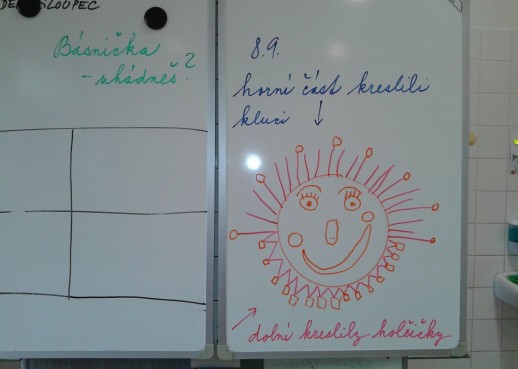 SLOUPEC
Básnička
- uhádneš?
8.9.
horní část kreslili
kluci ↓
dolní kreslily holčičky